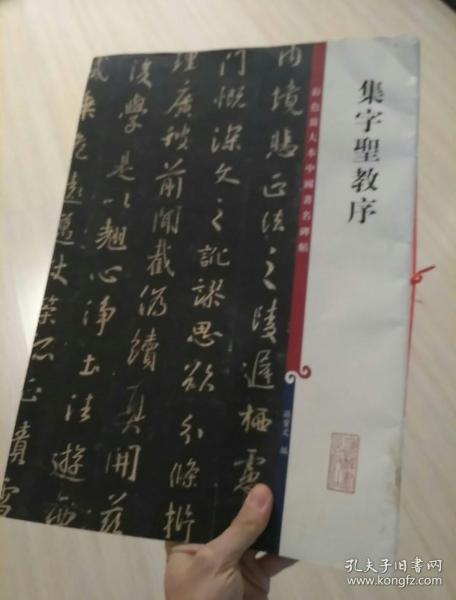 集字聖教序
彩色放大本中國著名碑帖
孫寶文 編
内境悲正法之陵遲栖慮
門慨深文之訛謬思欲分條析
理廣彼前聞截偽續真開茲
後學是以翹心淨土法遊西
孔夫子旧书网
www.kongfz.com